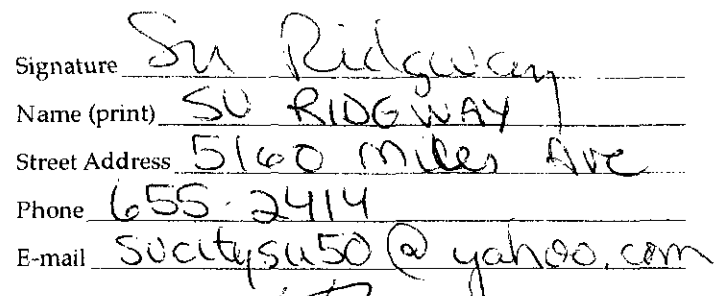 Signature Su Ridgway
Name (print) SU RIDGWAY
Street Address 5160 Miles Ave
Phone 655-2414
E-mail sucitysu50@yahoo.com